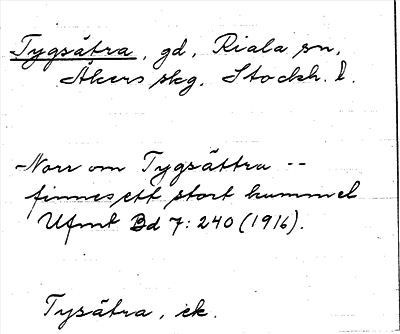 Tygsätra, gd, Riala sn,
Åkers skg, Stockh. l.
Norr om Tygsättra --
finnes ett stort kummel
Ufmt Bd 7: 240 (1916).
Tysätra, ek.